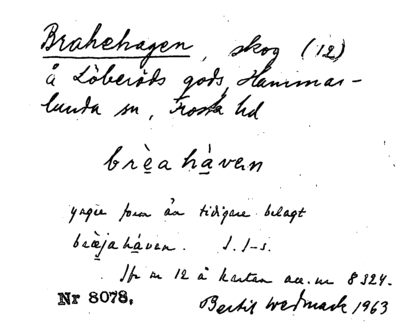 Brahehagen, skog (12)
å Löberöds gods, Hammar-
lunda sn, Frosta hd
brè̱a há̱van
yngre form än tidigare belagt
brè̱ja há̱van. s. l-s.
Jfr nr 12 å kartan acc. nr 8324.
Nr 8078, Bertil Wedmark 1963